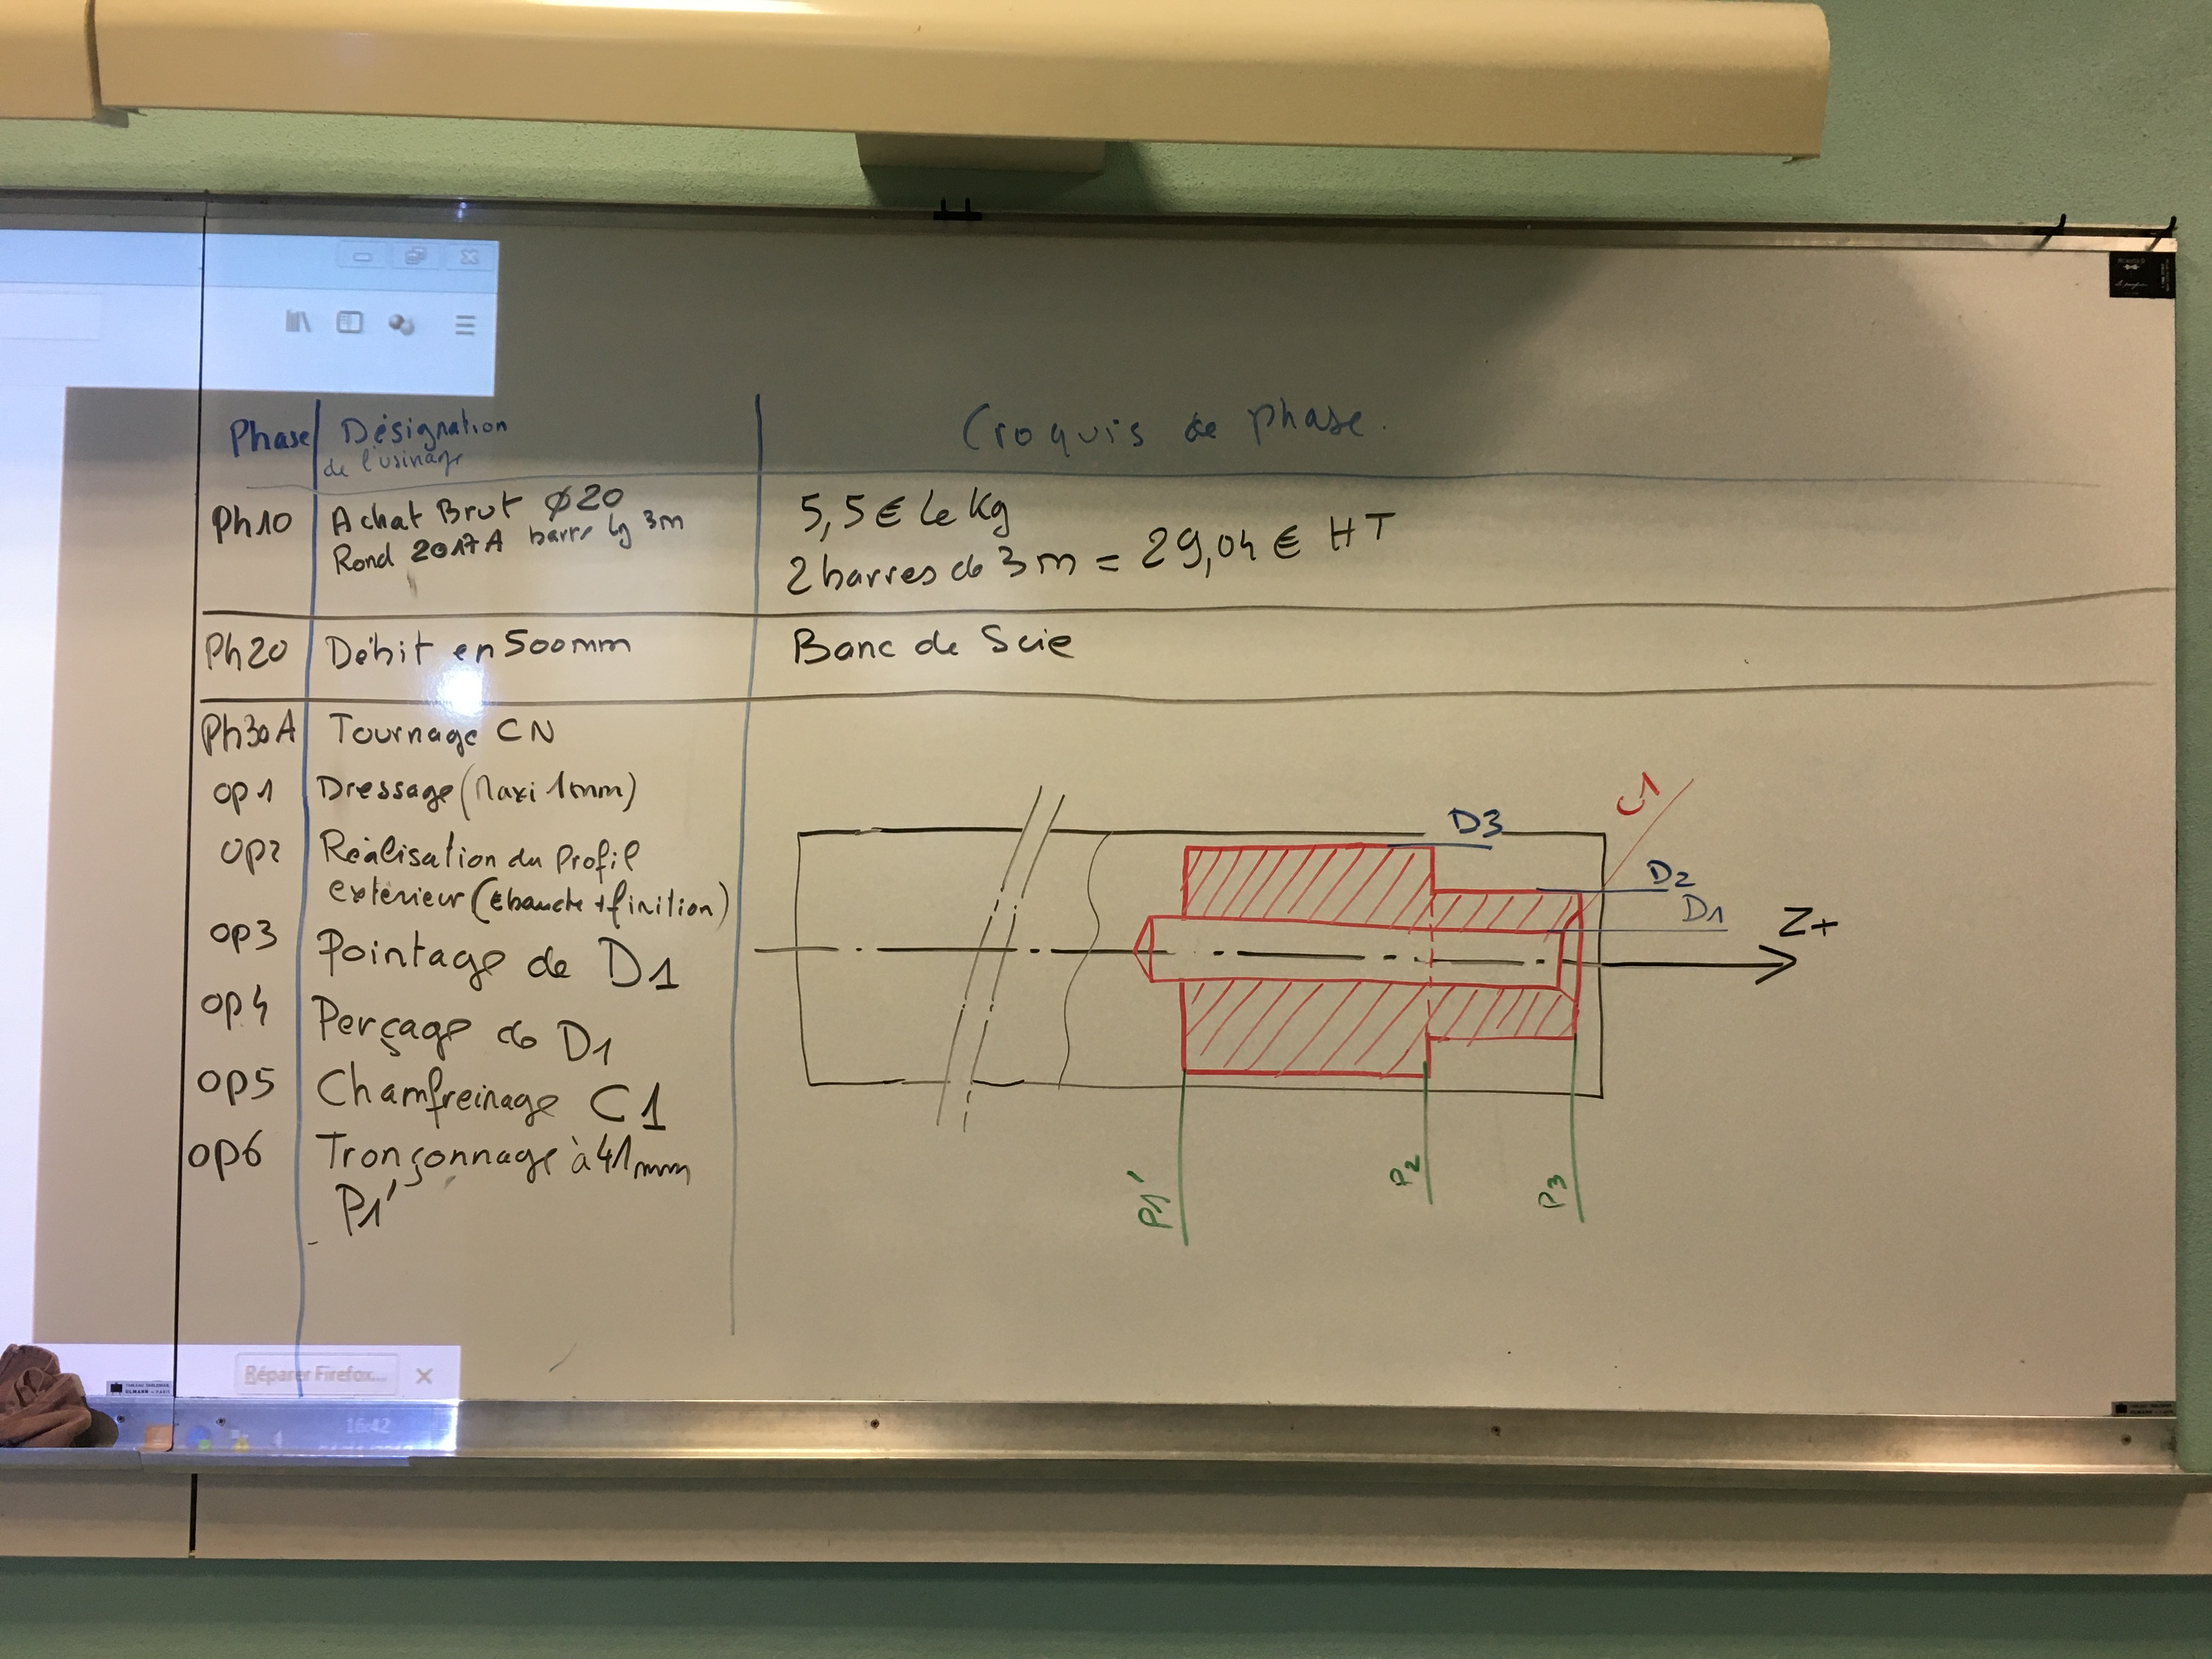 Phase
Désignation
de l'usinage
Croquis de phase.
Ph10
Achat Brut Ø20
Rond 2017A barre lg 3m
5,5€ le Kg
2 barres de 3m = 29,04 € HT
Ph20
Débit en 500mm
Banc de Scie
Ph30A
Tournage CN
op1
Dressage (Maxi 1mm)
op2
Réalisation du Profil
extérieur (Ebauche + finition)
op3
Pointage de D1
op4
Perçage de D1
op5
Chamfreinage C1
op6
Tronçonnage à 41mm
P1'
C1
D3
D2
D1
Z+
P1'
P2
P3
Réparer Firefox...
16:42